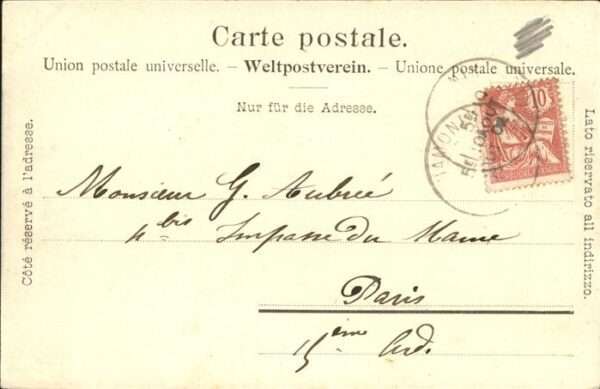 Carte postale.
Union postale universelle. – Weltpostverein. – Unione postale universale.
Nur für die Adresse.
Côté réservé à l'adresse.
Lato riservato all indirizzo.
10
Monsieur G. Aubrée
4 bis Impasse du Maine
Paris
15ème Ard.